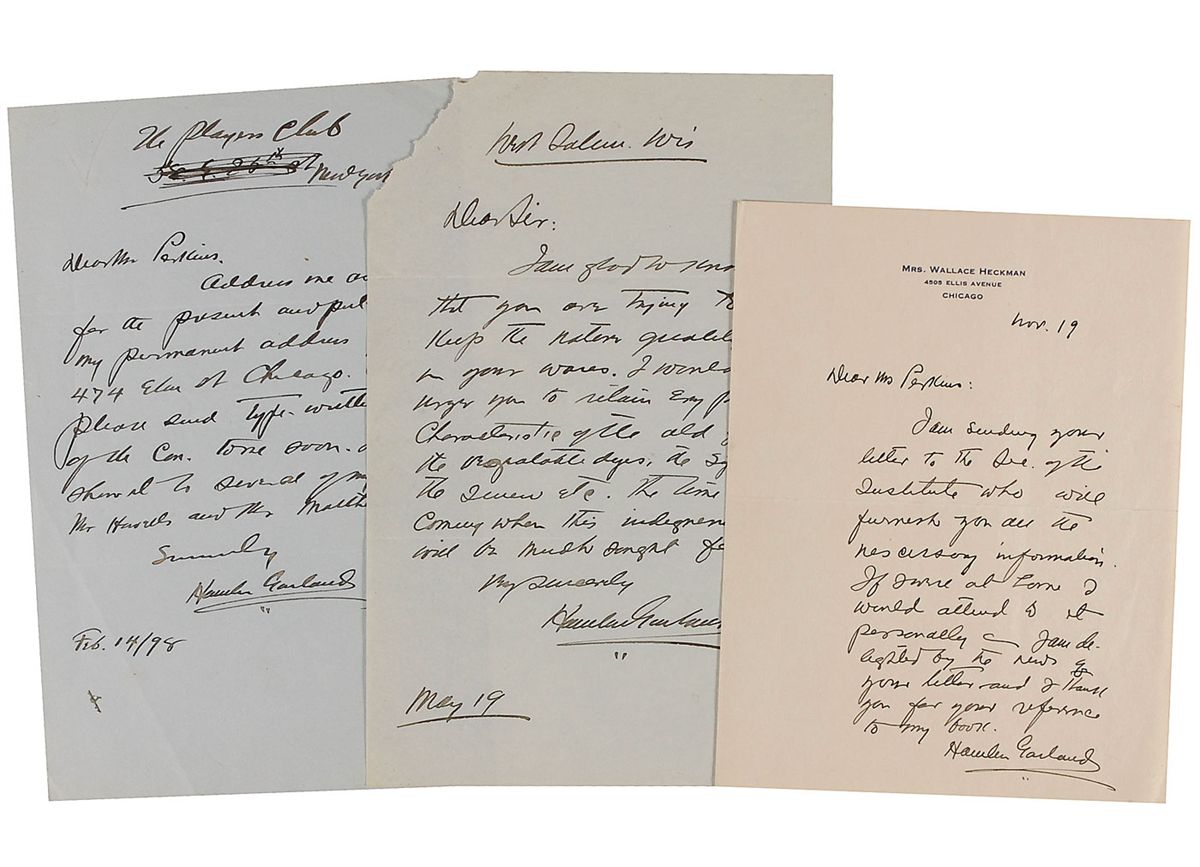 The Players Club
New York
Dear Mr Perkins.
Address me
for the present and put
my permanent address
474 Elm St Chicago.
Please send type-written
of the Con. to me soon.
show it to several of my
Mr Howells and Mr Matthe
Sincerely
Hamlin Garland
Feb. 14/98
West Salem. Wis
Dear Sir:
I am glad to know
that you are trying to
keep the native qualit
in your wares. I would
urge you to retain every
Characteristic of the old
the vegetable dyes, the
the etc. The time
Coming when this indigenou
will be much sought fo
Very sincerely
Hamlin Garland
May 19
MRS. WALLACE HECKMAN
4505 ELLIS AVENUE
CHICAGO
Nov. 19
Dear Mr Perkins:
I am sending your
letter to the Sec. of the
Institute who will
furnish you all the
necessary information.
If I were at home I
would attend to it
personally — I am de-
lighted by the news of
your letter and I thank
you for your reference
to my book.
Hamlin Garland